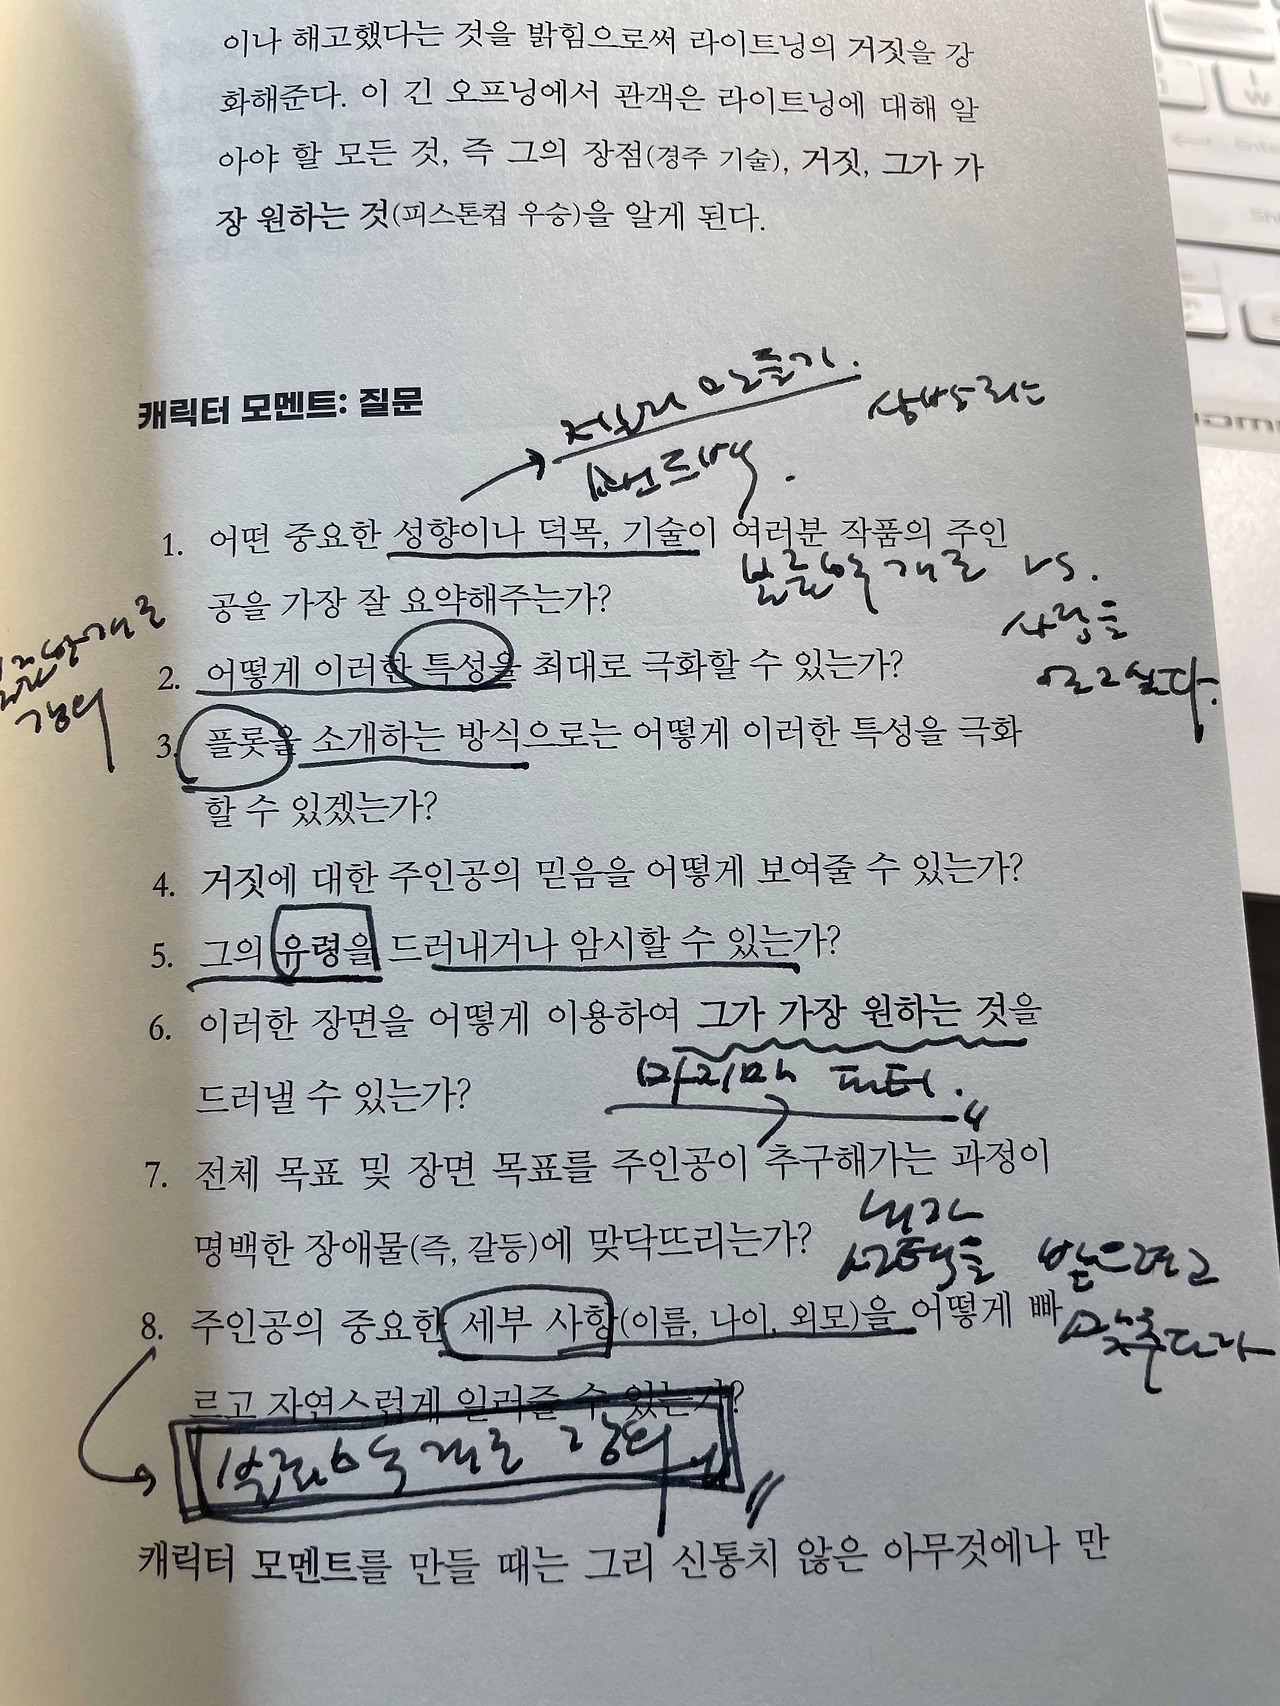 이나 해고했다는 것을 밝힘으로써 라이트닝의 거짓을 강
화해준다. 이 긴 오프닝에서 관객은 라이트닝에 대해 알
아야 할 모든 것, 즉 그의 장점(경주 기술), 거짓, 그가 가
장 원하는 것(피스톤컵 우승)을 알게 된다.
캐릭터 모멘트: 질문
1. 어떤 중요한 성향이나 덕목, 기술이 여러분 작품의 주인
공을 가장 잘 요약해주는가?
vs.
사람을
2. 어떻게 이러한 특성을 최대로 극화할 수 있는가?
3. 플롯을 소개하는 방식으로는 어떻게 이러한 특성을 극화
할 수 있겠는가?
4. 거짓에 대한 주인공의 믿음을 어떻게 보여줄 수 있는가?
5. 그의 유령을 드러내거나 암시할 수 있는가?
6. 이러한 장면을 어떻게 이용하여 그가 가장 원하는 것을
드러낼 수 있는가?
마지막 퍼터.
7. 전체 목표 및 장면 목표를 주인공이 추구해가는 과정이
명백한 장애물(즉, 갈등)에 맞닥뜨리는가?
8. 주인공의 중요한 세부 사항(이름, 나이, 외모)을 어떻게 빠
르고 자연스럽게 일러줄 수 있는가?
캐릭터 모멘트를 만들 때는 그리 신통치 않은 아무것에나 만